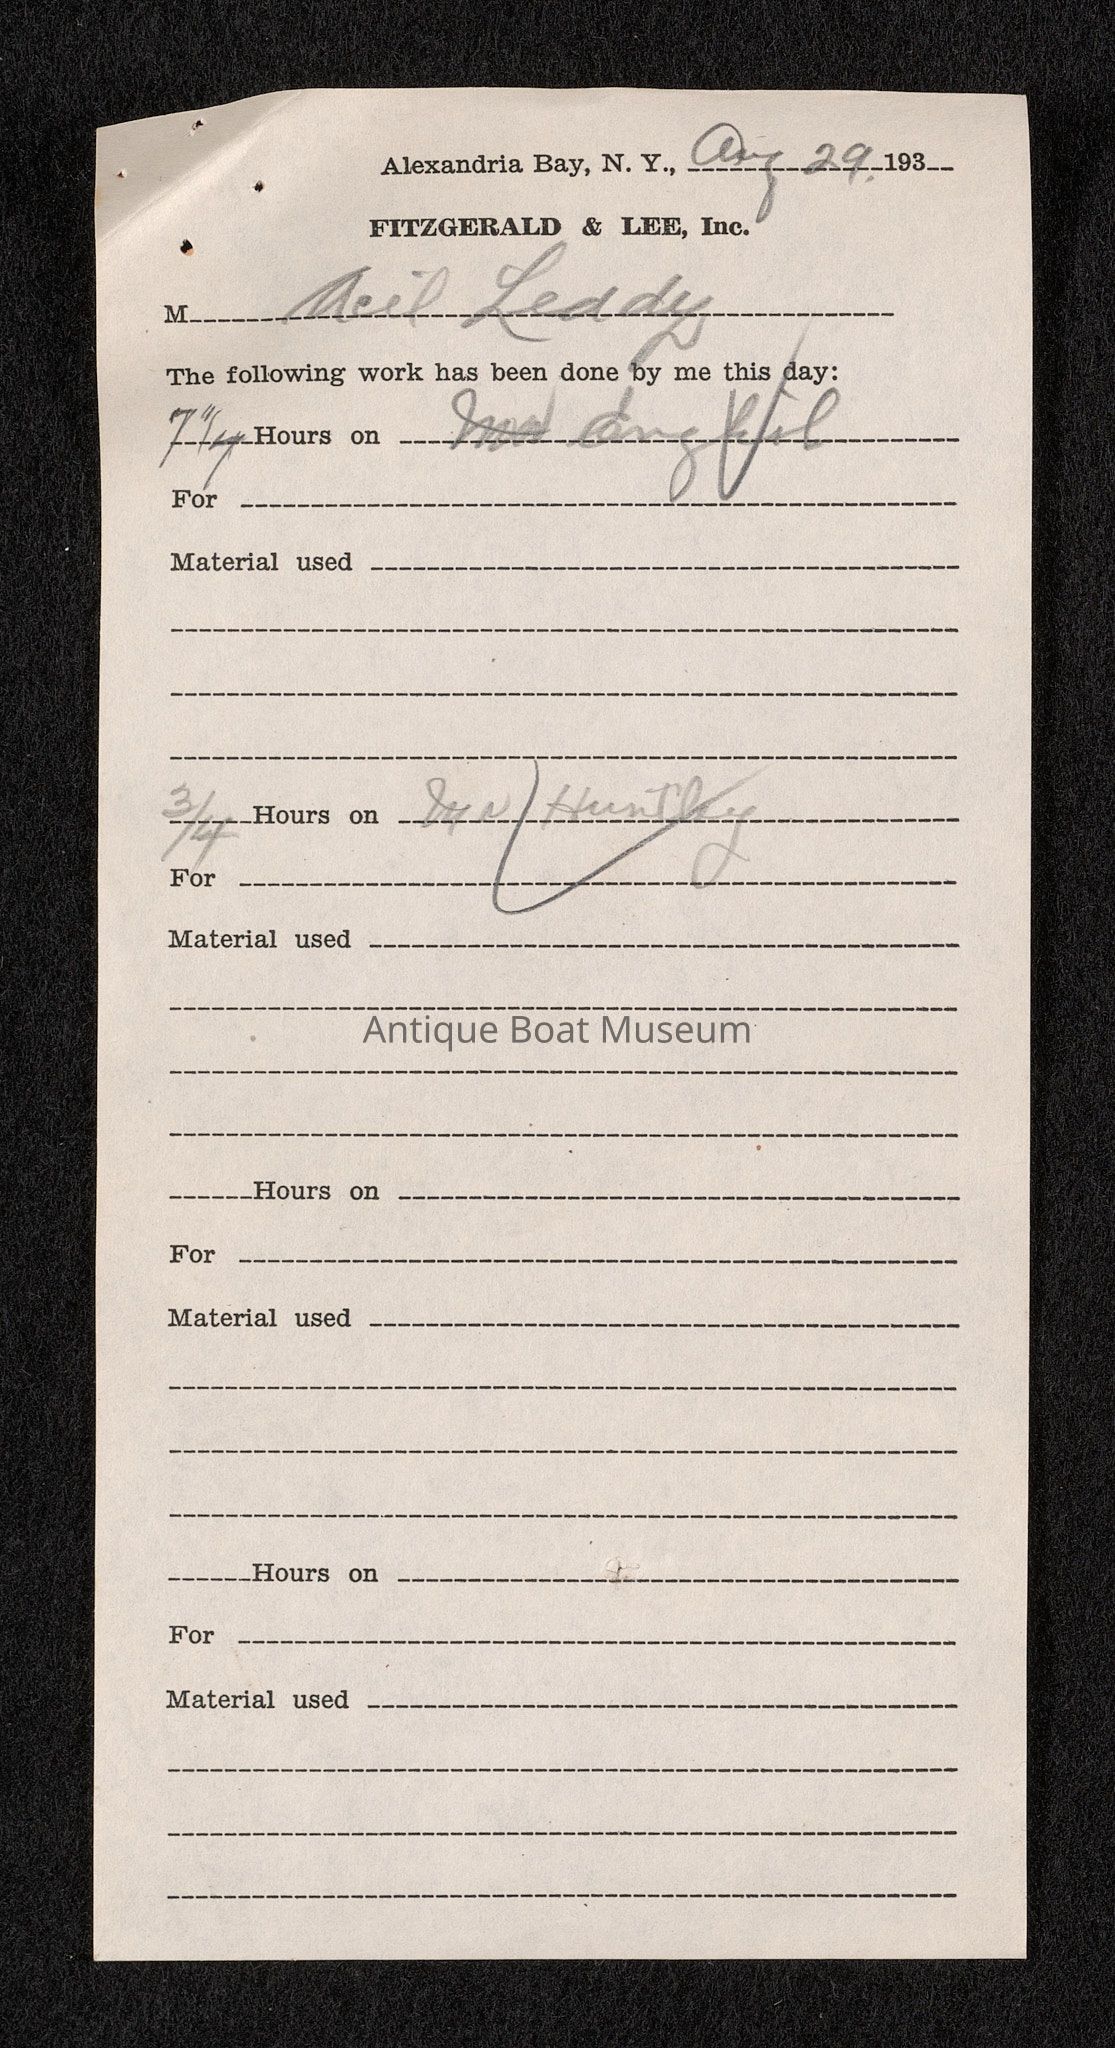 Alexandria Bay, N. Y., Aug 29. 193
FITZGERALD & LEE, Inc.
M Neil Leddy
The following work has been done by me this day:
7 1/4 Hours on
For
Material used
3/4 Hours on Mr Huntley
For
Material used
Antique Boat Museum
Hours on
For
Material used
Hours on
For
Material used